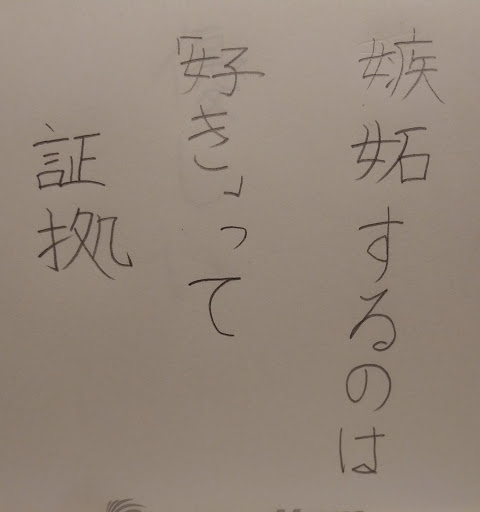 嫉妬するのは
「好き」って
証拠